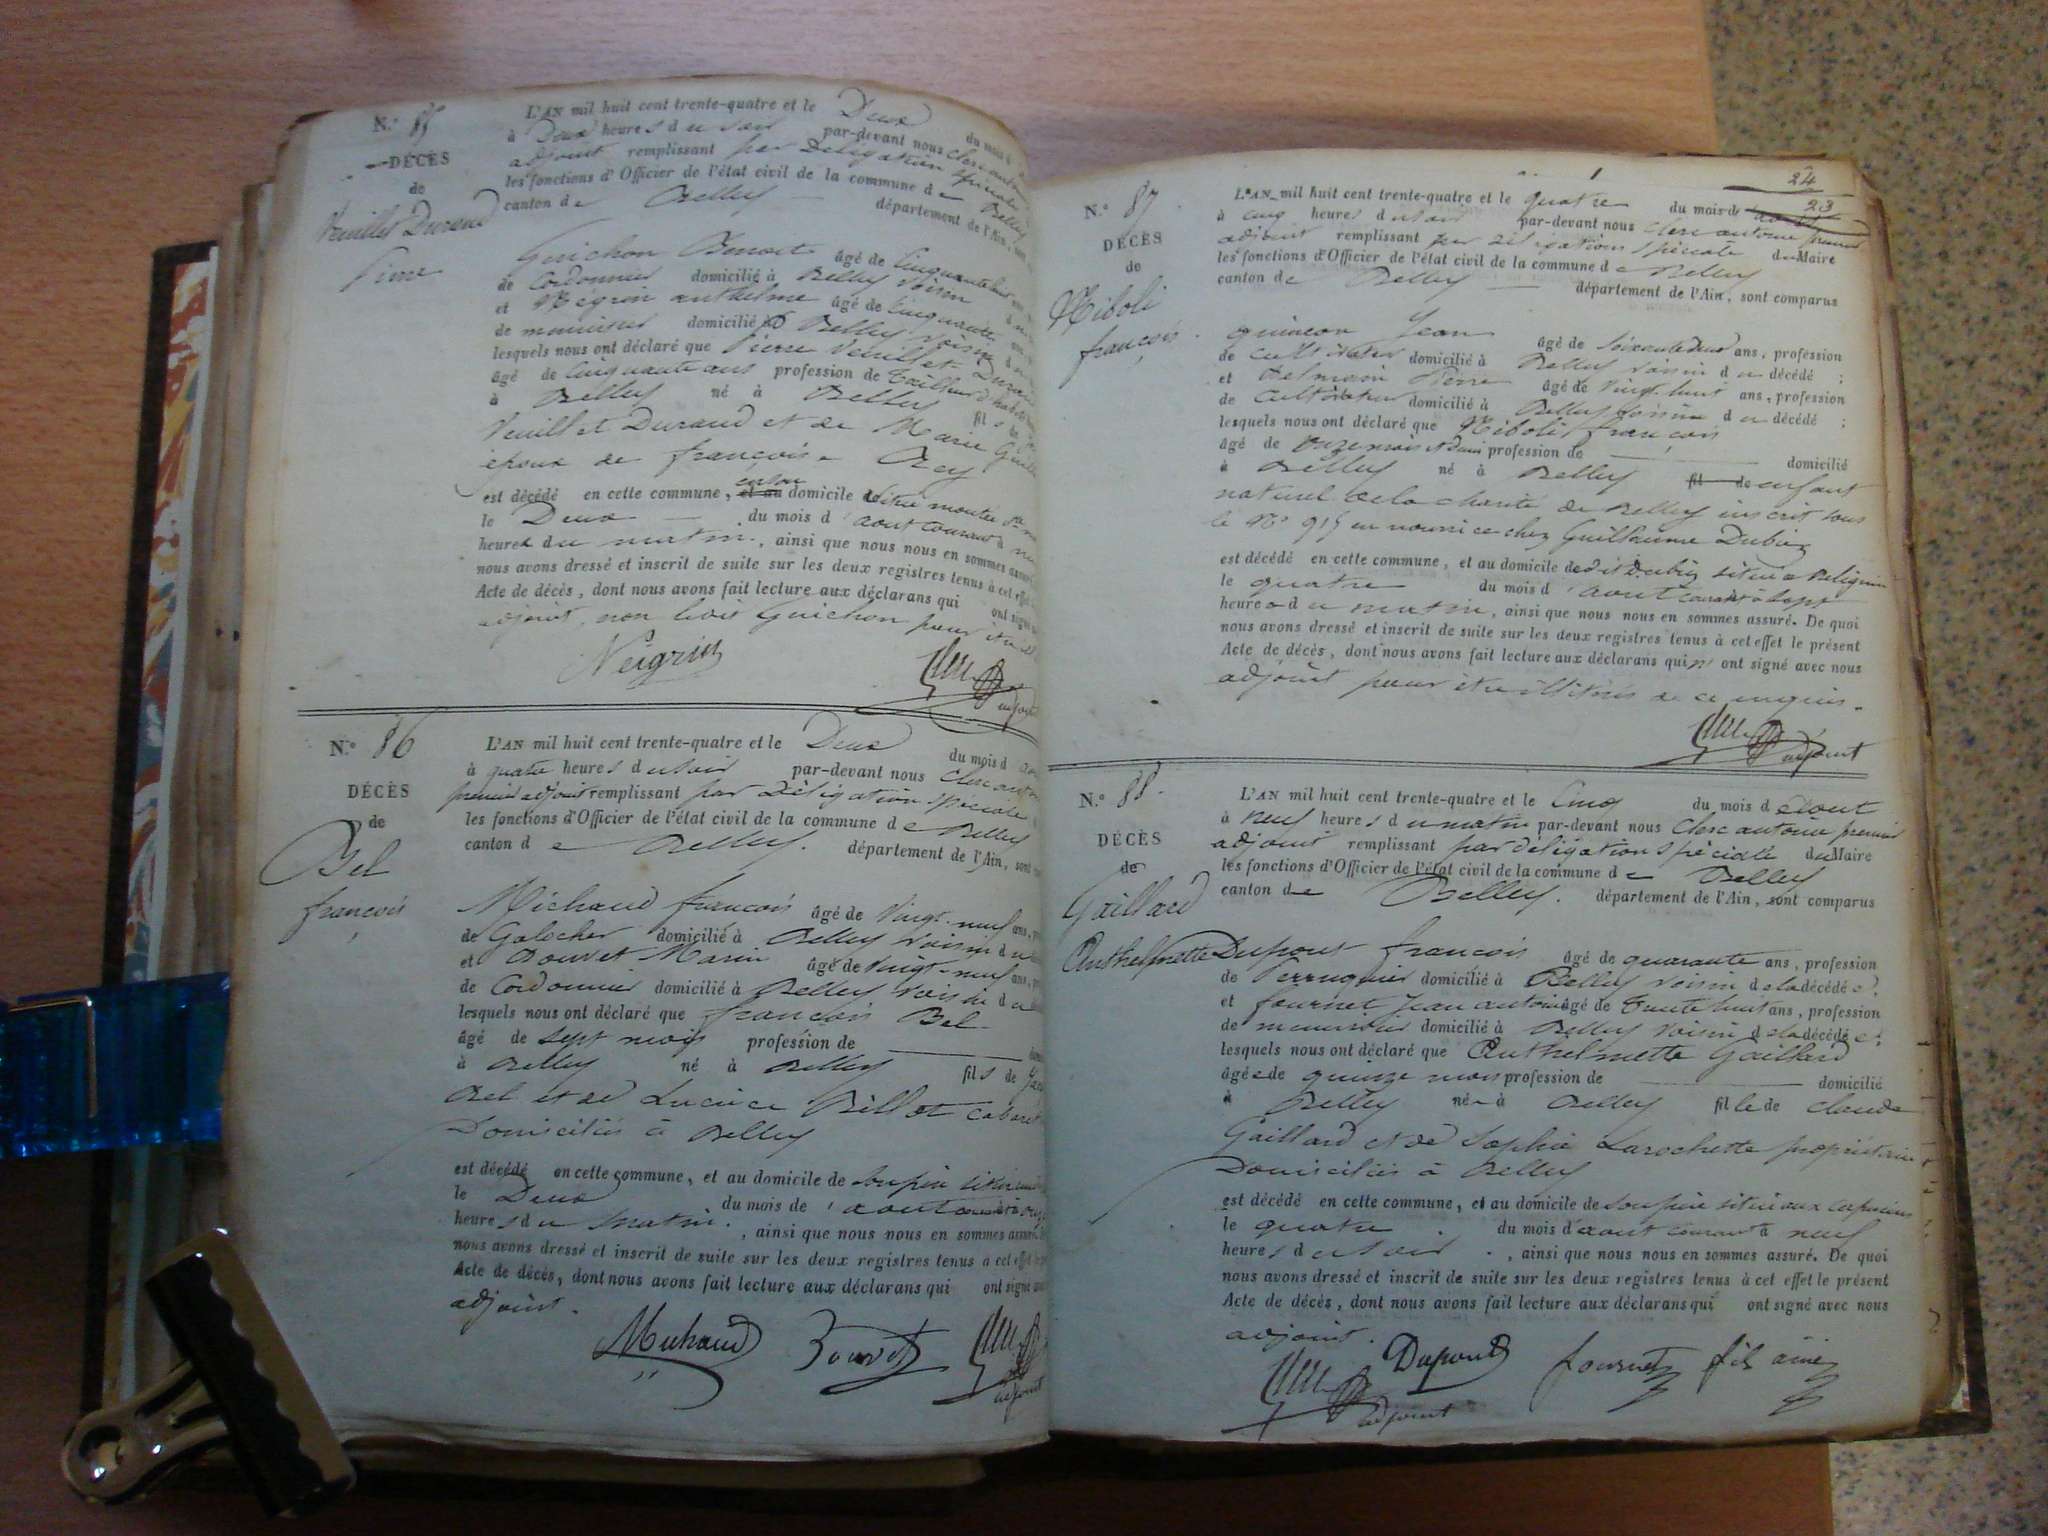 N.° 85
DÉCÈS
de
Veuillet Durand
Pierre
L'AN mil huit cent trente-quatre et le Deux du mois d
à Deux heures du soir par-devant nous Clerc antoine
adjoint remplissant par Délégation spéciale
les fonctions d'Officier de l'état civil de la commune de Belley
canton de Belley département de l'Ain,
Guichon Benoit âgé de Cinquante
de Cordonnier domicilié à Belley voisin
et Negrin anthelme âgé de Cinquante
de menuisier domicilié à Belley voisin
lesquels nous ont déclaré que Pierre Veuillet Durand
âgé de Cinquante ans profession de Tailleur d'habits
à Belley né à Belley fils de
Veuillet Durand et de Marie
époux de françoise Rey
est décédé en cette commune, et au domicile situé montée
le Deux du mois d'aout courant à
heures du matin, ainsi que nous nous en sommes assuré
nous avons dressé et inscrit de suite sur les deux registres tenus à cet effet
Acte de décès, dont nous avons fait lecture aux déclarans qui ont signé
adjoint, non led. Guichon pour
Neigrin
adjoint
N.° 86
DÉCÈS
de
Bel
françois
L'AN mil huit cent trente-quatre et le Deux du mois d
à quatre heures du soir par-devant nous Clerc
premier adjoint remplissant par Délégation spéciale
les fonctions d'Officier de l'état civil de la commune de Belley
canton de Belley. département de l'Ain,
Michaud françois âgé de vingt-neuf ans,
de Galocher domicilié à Belley voisin du
et Bouvet Marin âgé de vingt-neuf ans,
de Cordonnier domicilié à Belley voisin du
lesquels nous ont déclaré que françois Bel
âgé de sept mois profession de
à Belley né à Belley fils de
Bel et de Lucrèce Billet
Domiciliés à Belley
est décédé en cette commune, et au domicile de son père
le Deux du mois de aout courant à
heures du matin, ainsi que nous nous en sommes assuré
nous avons dressé et inscrit de suite sur les deux registres tenus à cet effet
Acte de décès, dont nous avons fait lecture aux déclarans qui ont signé
adjoint.
Michaud Bouvet
adjoint
24
23
N.° 87
DÉCÈS
de
Niboli
françois
L'AN mil huit cent trente-quatre et le quatre du mois de
à cinq heures du soir par-devant nous Clerc antoine premier
adjoint remplissant par délégation spéciale du Maire
les fonctions d'Officier de l'état civil de la commune de Belley
canton de Belley département de l'Ain, sont comparus
quinson Jean âgé de soixante deux ans, profession
de Cultivateur domicilié à Belley voisin du décédé ;
et Pierre âgé de vingt-huit ans, profession
de Cultivateur domicilié à Belley voisin du décédé ;
lesquels nous ont déclaré que Niboli françois
âgé de onze mois et demi profession de domicilié
à Belley né à Belley fil de enfant
naturel de la charité de Belley inscrit sous
le N° 915 en nourrice chez Guillaume Dubiez
est décédé en cette commune, et au domicile de dit Dubiez situé a
le quatre du mois d'aout courant à sept
heures du matin, ainsi que nous nous en sommes assuré. De quoi
nous avons dressé et inscrit de suite sur les deux registres tenus à cet effet le présent
Acte de décès, dont nous avons fait lecture aux déclarans qui n'ont signé avec nous
adjoint pour être illitérés de ce enquis.
adjoint
N.° 88
DÉCÈS
de
Gaillard
Anthelmette
L'AN mil huit cent trente-quatre et le Cinq du mois d'aout
à neuf heures du matin par-devant nous Clerc antoine premier
adjoint remplissant par délégation spéciale du Maire
les fonctions d'Officier de l'état civil de la commune de Belley
canton de Belley. département de l'Ain, sont comparus
Dupont françois âgé de quarante ans, profession
de Perruquier domicilié à Belley voisin de la décédée ;
et fournet Jean antoine âgé de trente huit ans, profession
de menuisier domicilié à Belley voisin de la décédée ;
lesquels nous ont déclaré que Anthelmette Gaillard
âgée de quinze mois profession de domicilié
à Belley née à Belley fille de claude
Gaillard et de Sophie Larochette propriétaires
Domiciliés à Belley
est décédé en cette commune, et au domicile de son père situé aux capucins
le quatre du mois d'aout courant à neuf
heures du soir, ainsi que nous nous en sommes assuré. De quoi
nous avons dressé et inscrit de suite sur les deux registres tenus à cet effet le présent
Acte de décès, dont nous avons fait lecture aux déclarans qui ont signé avec nous
adjoint.
Dupont fournet fils ainé
adjoint